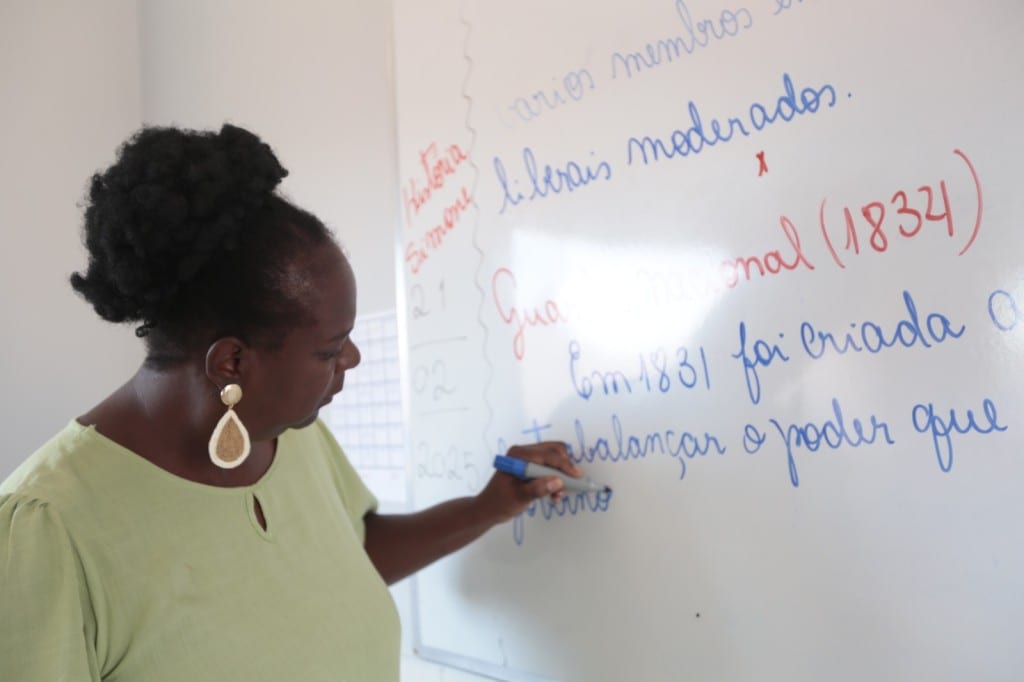 História
Simone
21
02
2025
vários membros
liberais moderados.
x
Guarda nacional (1834)
Em 1831 foi criada a
o poder que
governo